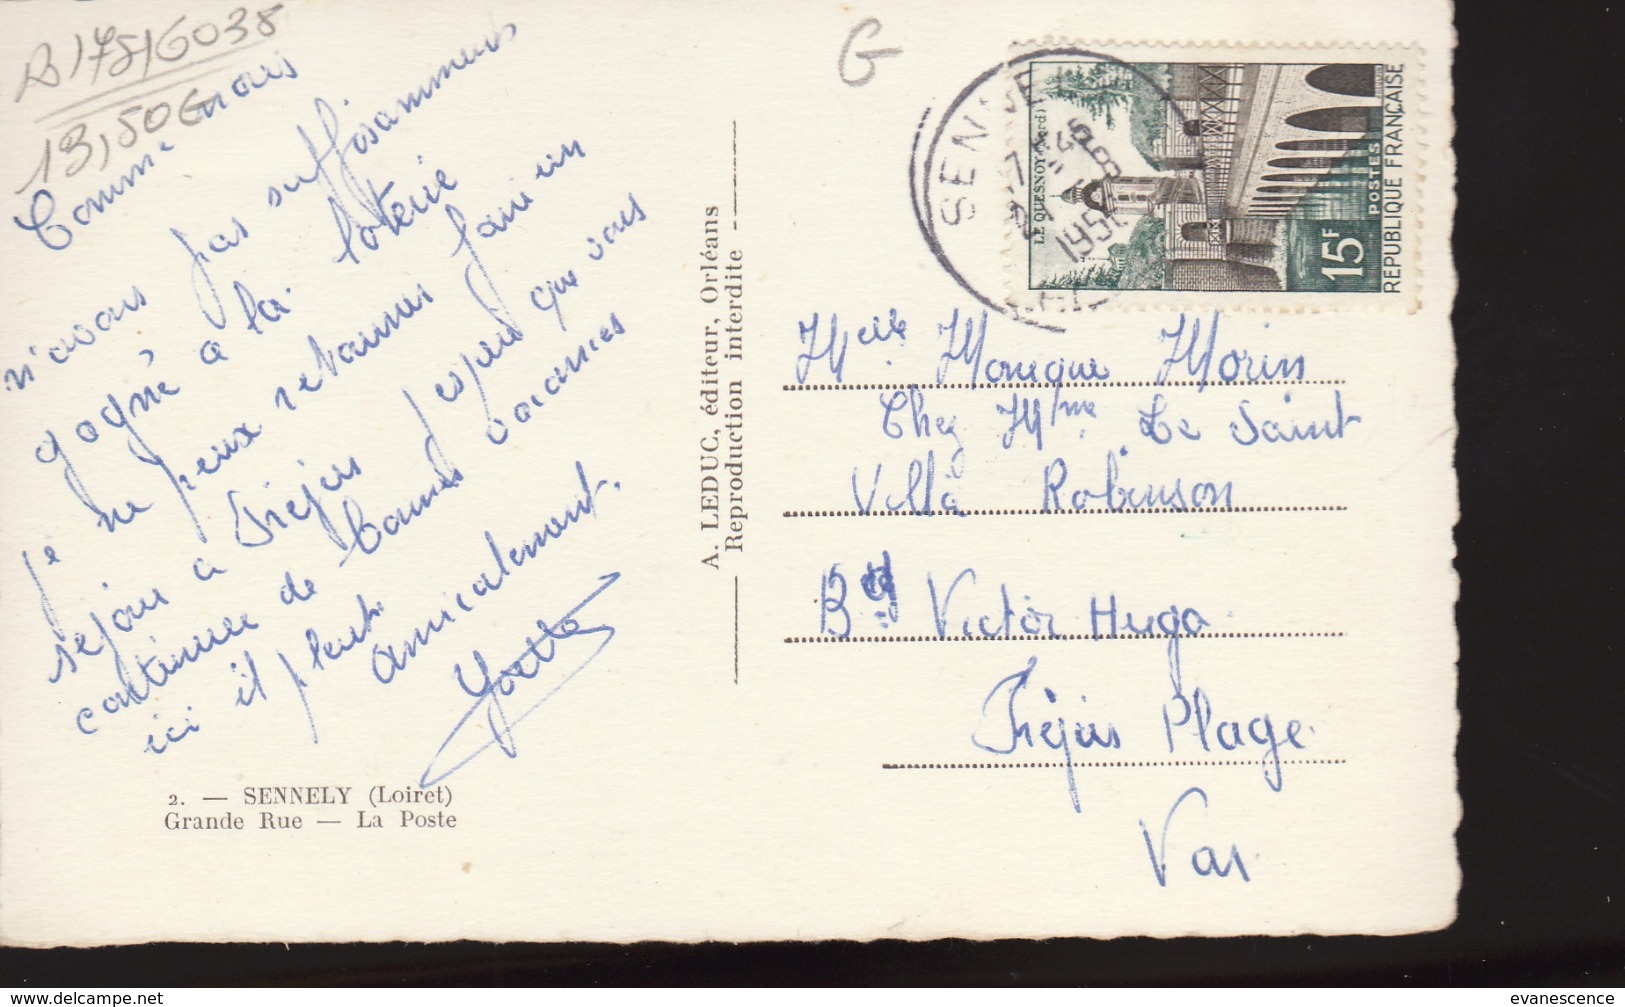 B/75/6038
13,50€
G
Comme nous
n'avons pas suffisamment
gagné à la loterie
je ne peux retourner faire un
séjour à Fréjus j'espère que vous
continuer de bonnes vacances
ici il pleut.
amicalement.
Yvette
2. — SENNELY (Loiret)
Grande Rue — La Poste
A. LEDUC, éditeur, Orléans
Reproduction interdite
SENNELY
LE QUESNOY (Nord)
15F
POSTES
REPUBLIQUE FRANÇAISE
Melle Monique Morin
Chez Mme Le Saint
Villa Robinson
Bd Victor Hugo
Fréjus Plage
Var
evanescence